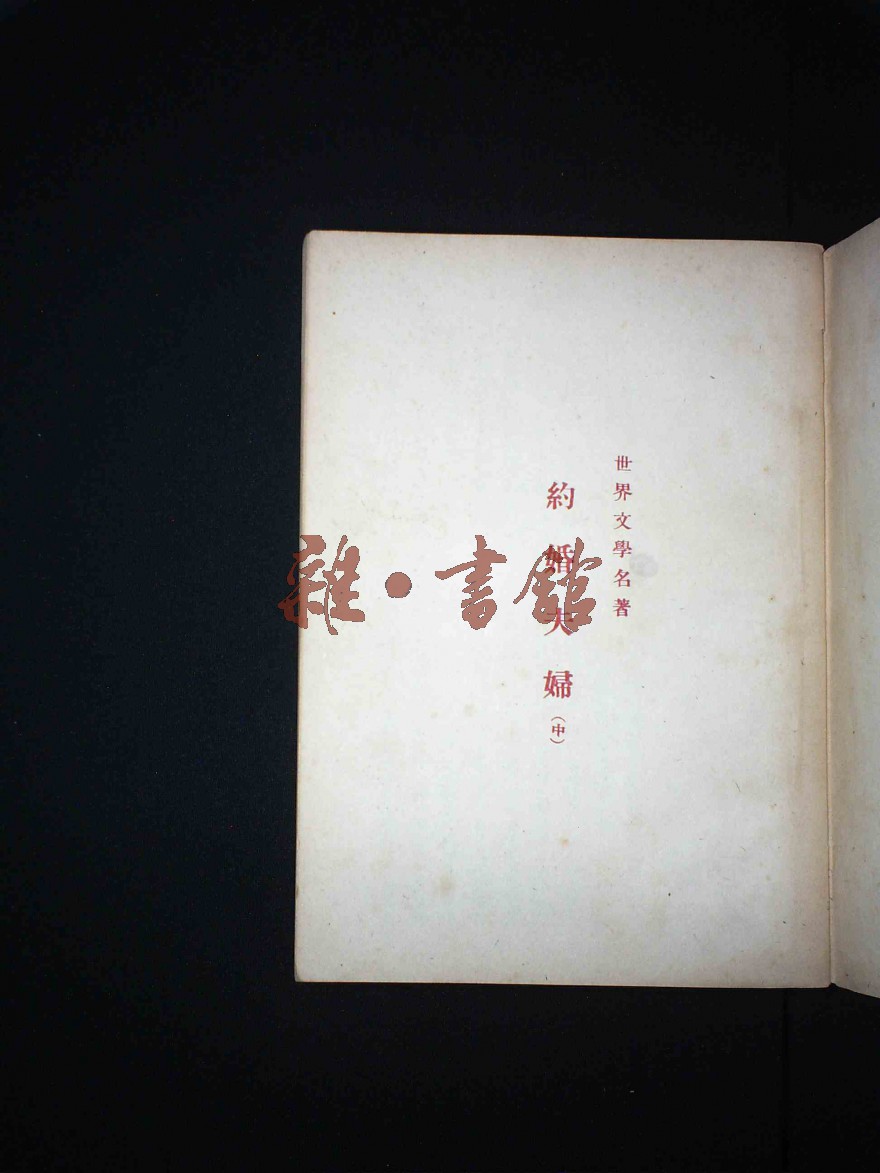 世界文學名著
約婚夫婦
（中）
雜·書館